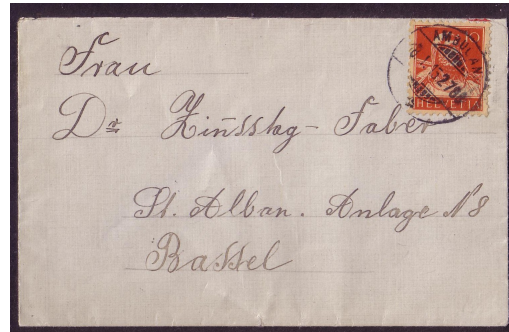 Frau
Dr Zinsstag - Faber
St. Alban. Anlage N 8
Bassel
AMBULANT
HELVETIA